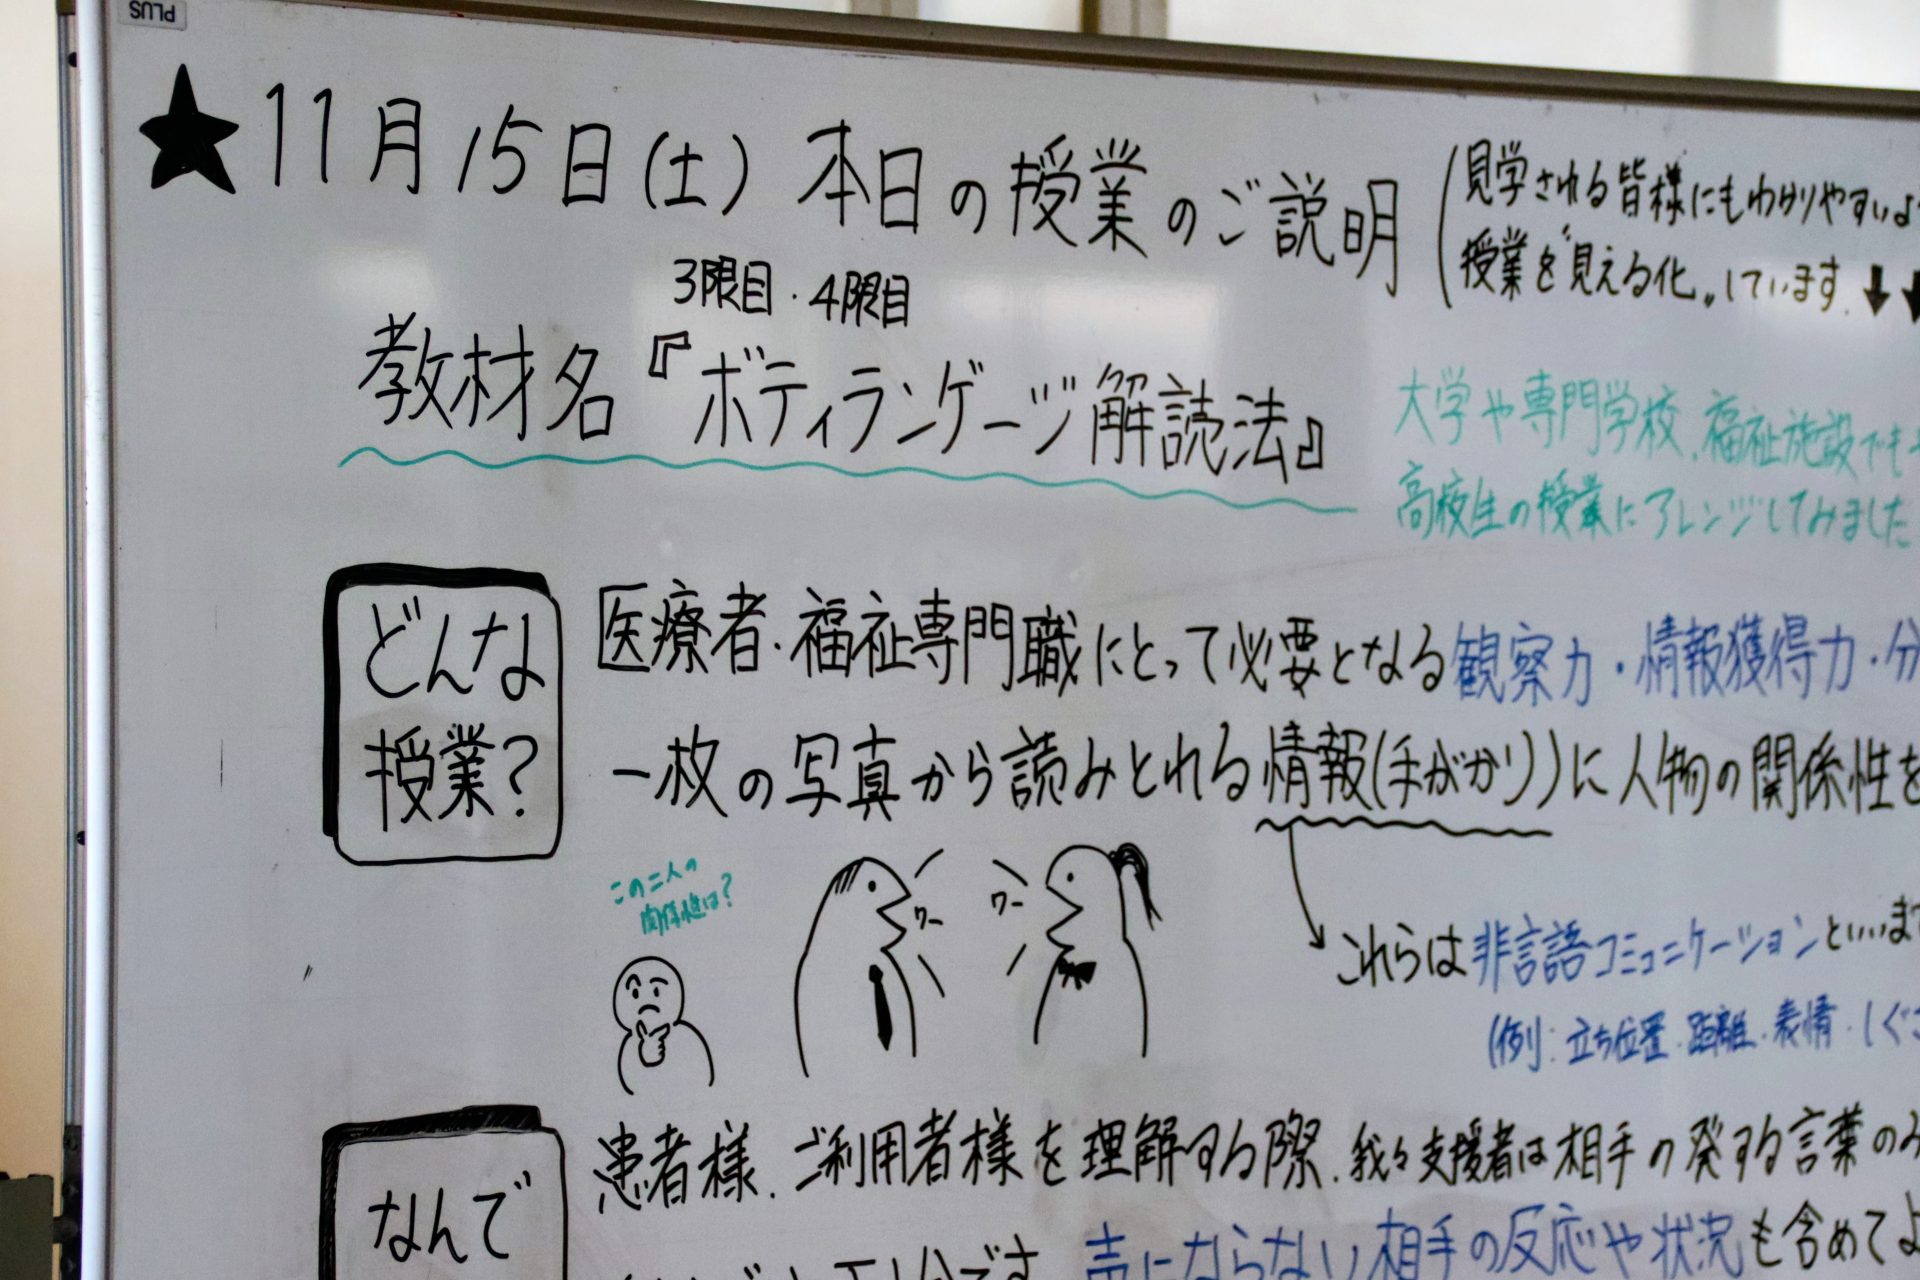 PLUS
★11月15日(土) 本日の授業のご説明
(見学される皆様にもわかりやすいよ
授業を"見える化"しています。↓↓
3限目・4限目
教材名『ボディランゲージ解読法』
大学や専門学校、福祉施設でも
高校生の授業にアレンジしてみました
どんな
授業?
医療者・福祉専門職にとって必要となる観察力・情報獲得力・分
一枚の写真から読みとれる情報(手がかり)に人物の関係性を
この二人の
関係性は?
ワー
ワー
これらは非言語コミュニケーションといいま
(例:立ち位置・距離・表情・しぐさ
なんで
患者様、ご利用者様を理解する際、我々支援者は相手の発する言葉のみ
声にならない相手の反応や状況も含めてよ